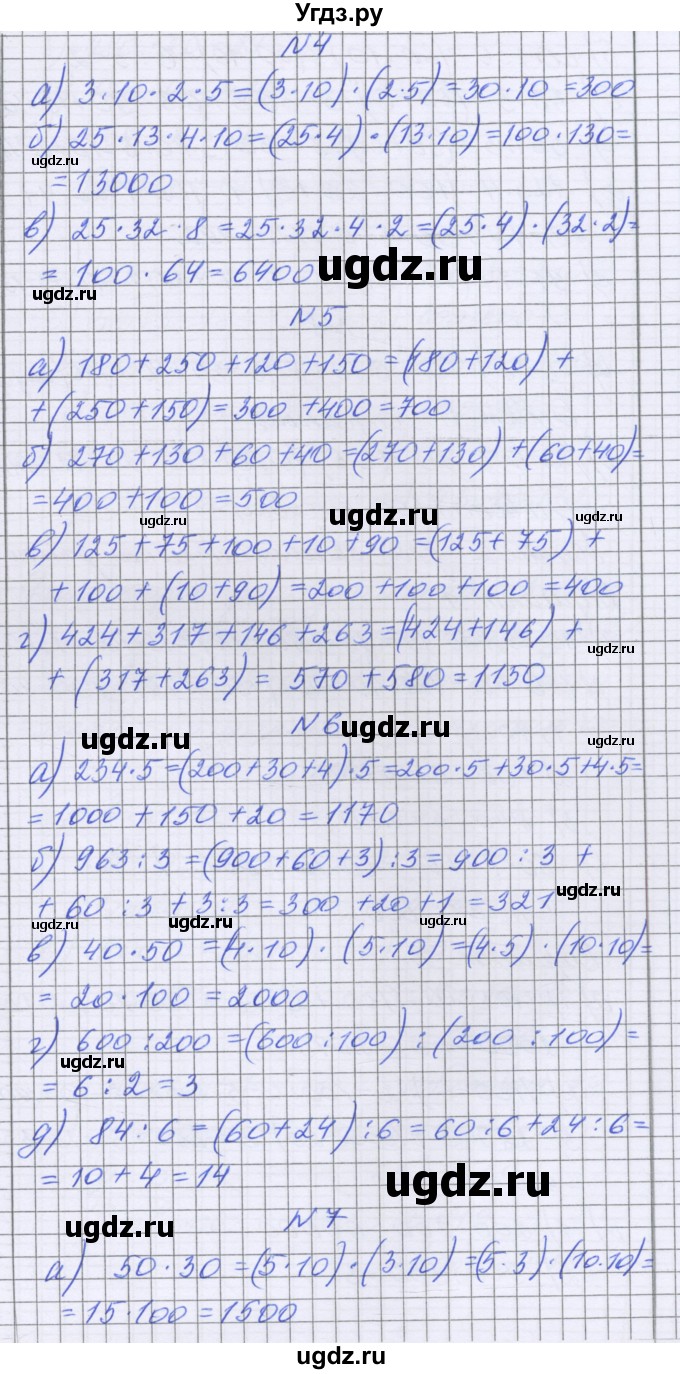 Угдз.ру
N4
а) 3·10·2·5=(3·10)·(2·5)=30·10=300
б) 25·13·4·10=(25·4)·(13·10)=100·130=
ugdz.ru
=13000
в) 25·32·8=25·32·4·2=(25·4)·(32·2)=
=100·64=6400
ugdz.ru
ugdz.ru
N5
а) 180+250+120+150=(180+120)+
+(250+150)=300+400=700
б) 270+130+60+40=(270+130)+(60+40)=
=400+100=500
ugdz.ru
ugdz.ru
в) 125+75+100+10+90=(125+75)+
+100+(10+90)=200+100+100=400
г) 424+317+146+263=(424+146)+
ugdz.ru
+(317+263)= 570+580=1150
N6
ugdz.ru
ugdz.ru
ugdz.ru
а) 234·5=(200+30+4)·5=200·5+30·5+4·5=
=1000+150+20=1170
б) 963:3=(900+60+3):3=900:3+
+60:3+3:3=300+20+1=321
ugdz.ru
ugdz.ru
ugdz.ru
в) 40·50=(4·10)·(5·10)=(4·5)·(10·10)=
=20·100=2000
г) 600:200=(600:100):(200:100)=
ugdz.ru
=6:2=3
д) 84:6=(60+24):6=60:6+24:6=
=10+4=14
ugdz.ru
ugdz.ru
N7
а) 50·30=(5·10)·(3·10)=(5·3)·(10·10)=
=15·100=1500
ugdz.ru